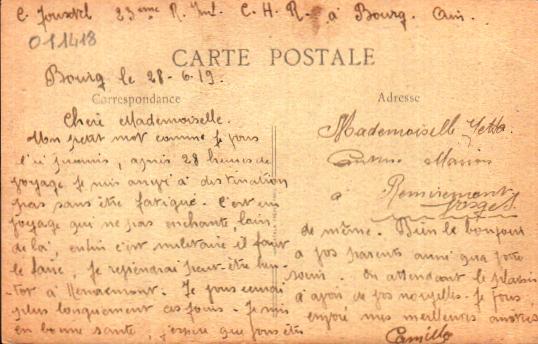 C. Joustel 23eme R. Inf. C. H. R. à Bourg. Ain.
011418
CARTE POSTALE
Bourg le 28-6-19.
Correspondance
Adresse
Cheré Mademoiselle.
Un petit mot comme je vous
l'ai promis, après 28 heures de
voyage, je suis arrivé à destination
pas sans être fatigué. C'est un
voyage qui ne pas enchanté, loin
de là, enfin c'est militaire il faut
le faire, je reviendrai peut-être bien-
-tôt à Remiremont. Je vous écrirai
plus longuement ces jours. Je suis
en bonne santé, j'espère que vous êtes
Mademoiselle
à Remiremont
Vosges
de même. Bien le bonjour
à vos parents ainsi que votre
En attendant le plaisir
d'avoir de vos nouvelles. Je vous
envoie mes meilleures amitiés
Camille